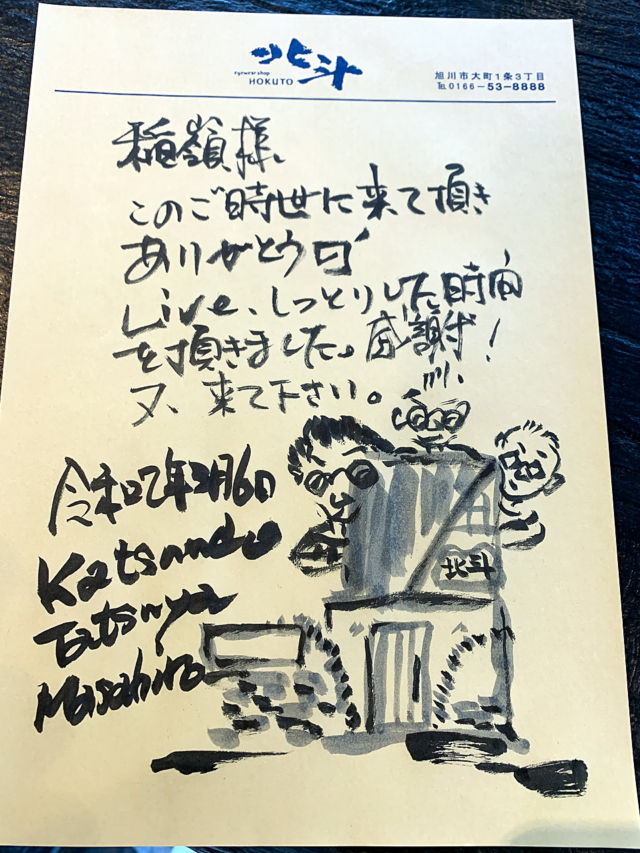 北斗
eyewear shop
HOKUTO
旭川市大町1条3丁目
TEL 0166-53-8888
稲嶺様、
このご時世に来て頂き
ありがとう
Live、しっとりした時間
を頂きました。感謝!
又、来て下さい。
令和 年2月6日
Tatsuya
Masahiro
北斗